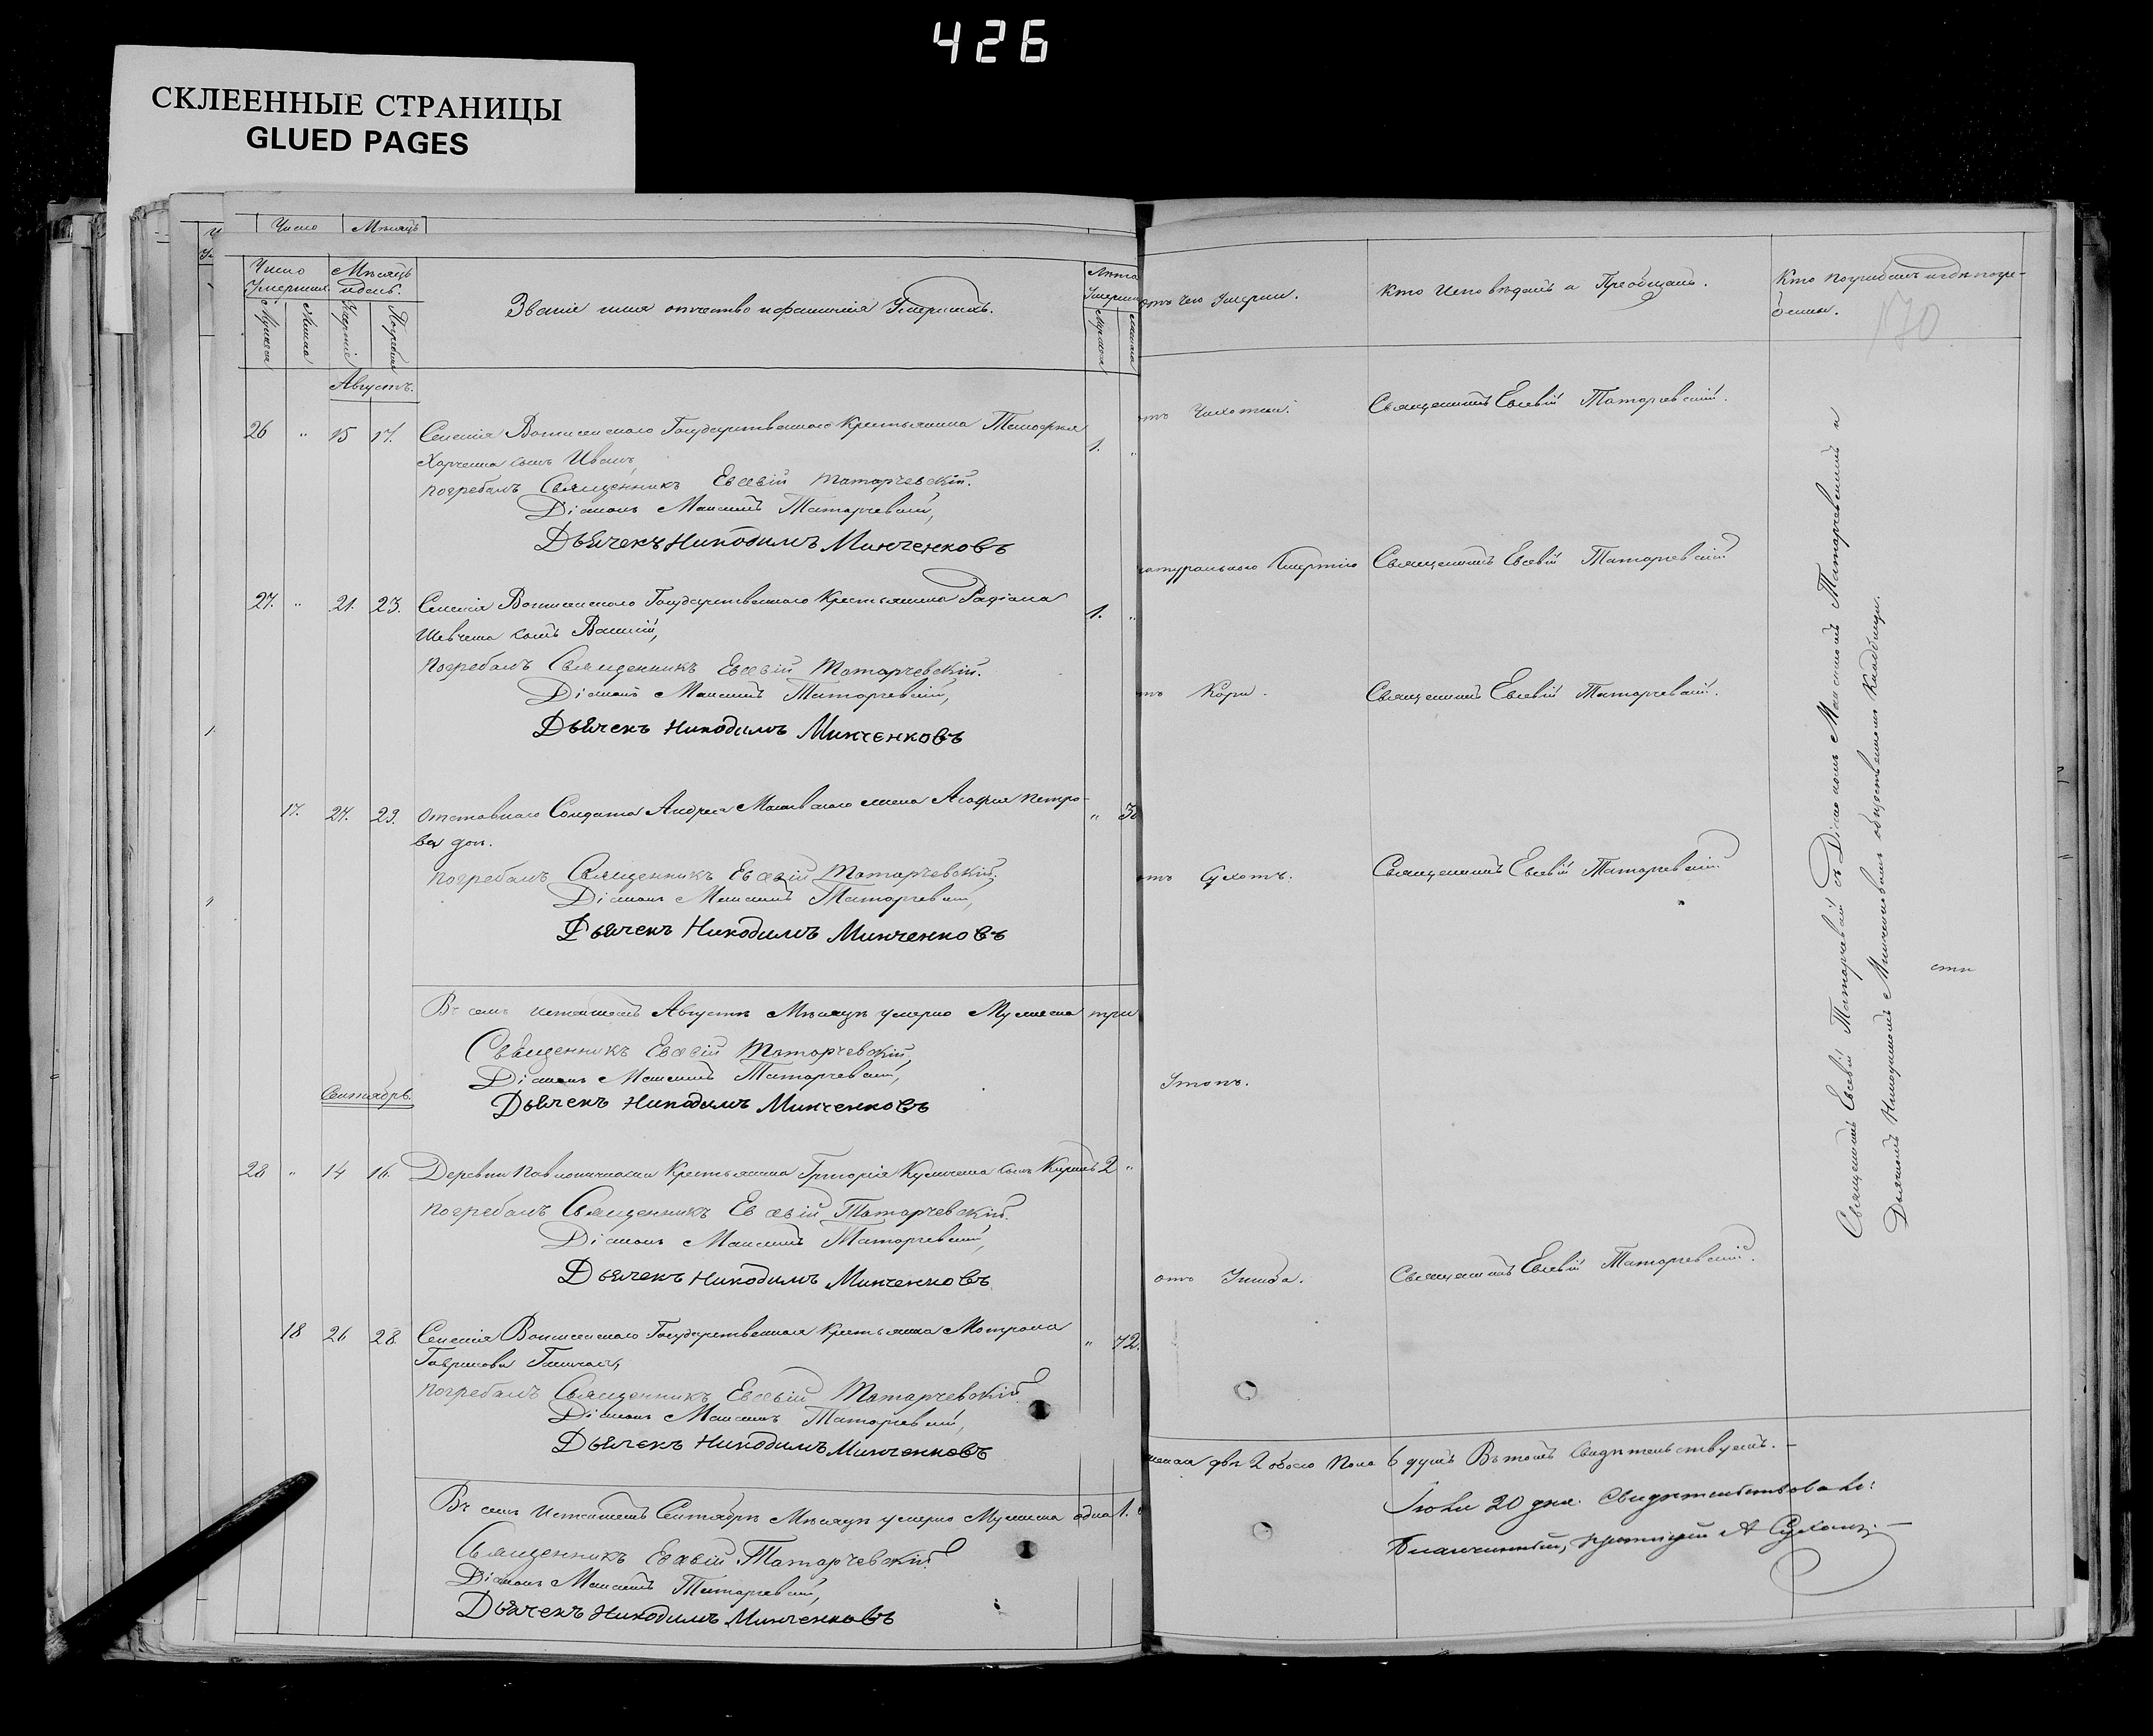 426
СКЛЕЕННЫЕ СТРАНИЦЫ
GLUED PAGES
Число Мѣсяцъ
Число Умершихъ
Мѣсяцъ и день.
Званіе имя отчество и фамилія Умершихъ.
Лѣта Умерш
Августъ.
26 " 15 17. Селенія Государственнаго Крестьянина Тимофея 1. "
Харченка сынъ Иванъ,
погребалъ Священникъ Евсевій Татарчевскій.
Діаконъ Максимъ Татарчевскій,
Дьячекъ Никодимъ Минченковъ
27. " 21. 23. Селенія Государственнаго Крестьянина Радіона 1. "
Шевченка сынъ Василій,
погребалъ Священникъ Евсевій Татарчевскій.
Діаконъ Максимъ Татарчевскій,
Дьячекъ Никодимъ Минченковъ
17. 27. 29. Отставнаго Солдата Андрея жена Агафія Петро- "
ва доч.
погребалъ Священникъ Евсевій Татарчевскій.
Діаконъ Максимъ Татарчевскій,
Дьячекъ Никодимъ Минченковъ
Въ семъ Августѣ Мѣсяцѣ умерло Мужеска три
Священникъ Евсевій Татарчевскій,
Діаконъ Максимъ Татарчевскій,
Дьячекъ Никодимъ Минченковъ
Сентябрь.
28 " 14 16. Деревни Крестьянина Григорія сынъ 2 "
погребалъ Священникъ Евсевій Татарчевскій.
Діаконъ Максимъ Татарчевскій,
Дьячекъ Никодимъ Минченковъ
18 26 28. Селенія Государственная Крестьянка Мотрона " 72.
Гаврилова
погребалъ Священникъ Евсевій Татарчевскій
Діаконъ Максимъ Татарчевскій,
Дьячекъ Никодимъ Минченковъ
Въ семъ Сентябрѣ Мѣсяцѣ умерло Мужеска одна 1.
Священникъ Евсевій Татарчевскій
Діаконъ Максимъ Татарчевскій,
Дьячекъ Никодимъ Минченковъ
отъ чего Умерли.
Кто Исповѣдалъ и Пріобщалъ.
Кто погребалъ и гдѣ погре-
бены.
170
отъ Чахотки. Священникъ Евсевій Татарчевскій.
натуральною смертію Священникъ Евсевій Татарчевскій
отъ Кори. Священникъ Евсевій Татарчевскій.
отъ Сухотъ. Священникъ Евсевій Татарчевскій
Утопъ.
отъ Священникъ Евсевій Татарчевскій.
Священникъ Евсевій Татарчевскій съ Діакономъ Максимомъ Татарчевскимъ и
Дьячкомъ Никодимомъ Минченковымъ на общественномъ кладбищѣ.
сти
двѣ 2 обоего Пола 6 душъ Въ томъ свидѣтельствуемъ.
20 дня. Свидѣтельствовалъ:
Благочинный,